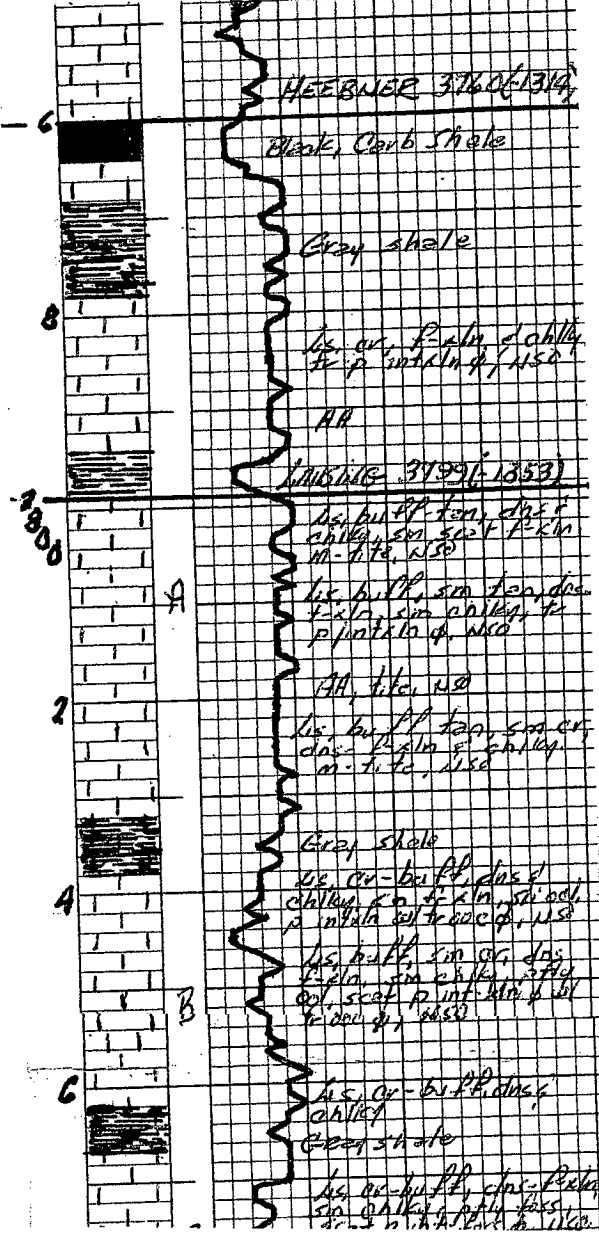 HEEBNER 3760(-1314)
6
Black, Carb Shale
Gray shale
8
Ls, cr, f-xln, & chlky
tr p intxln ϕ, NSO
AA
LANSING 3799(-1353)
3800
Ls, buff-tan, dns &
chlky, sm scat f-xln
m-tite, NSO
A
Ls, buff, sm tan, dns-
f-xln, sm chlky, tr
p intxln ϕ, NSO
AA, tite, NSO
2
Ls, buff tan, sm cr,
dns-f-xln & chlky
m-tite, NSO
Gray shale
4
Ls, cr-buff, dns &
chlky, sm f-xln, sli ool,
p intxln w/tr ooc ϕ, NSO
Ls, buff, sm cr, dns
f-xln, sm chlky, ptly
B
ool, scat p int-xln ϕ w/
tr ooc ϕ, NSO
6
Ls, cr-buff, dns &
chlky
Gray shale
Ls, cr-buff, dns-f-xln,
sm chlky, ptly foss,